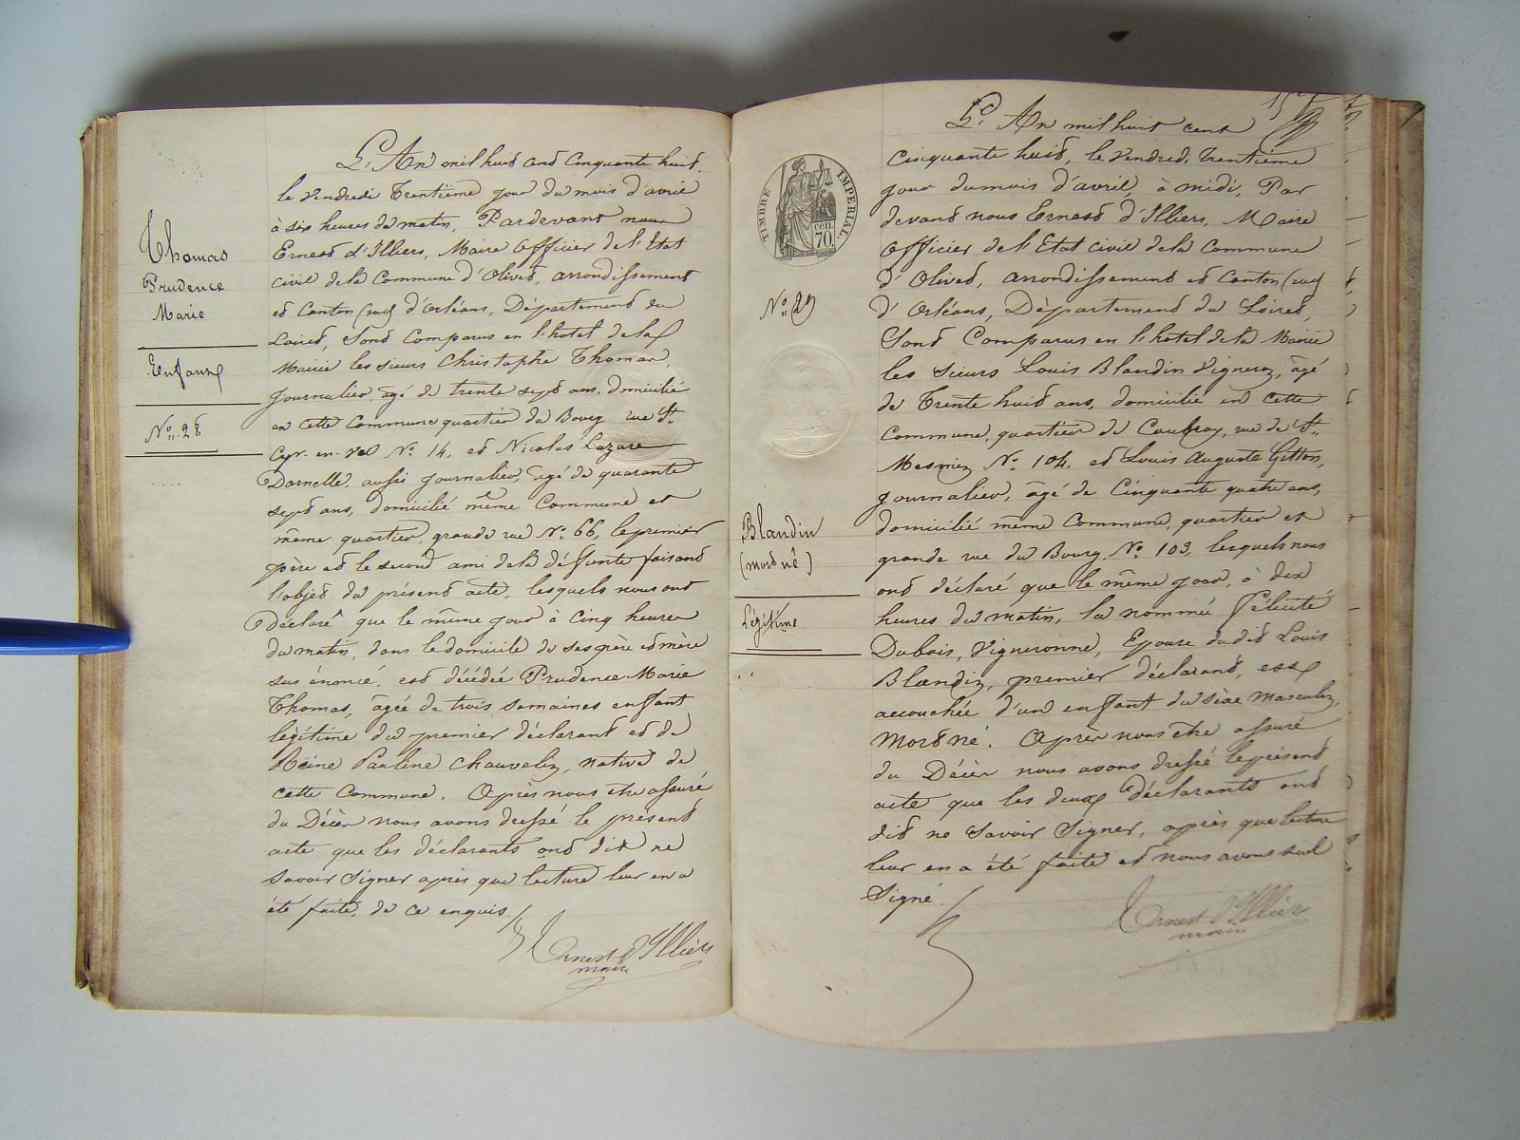 Thomas
Prudence
Marie
Enfant
No 28
L'An mil huit cent cinquante huit,
le vendredi trentième jour du mois d'avril
à six heures du matin, Pardevant nous
Ernest d'Illiers, Maire officier de l'Etat
civil de la Commune d'Olivet, arrondissement
et Canton (sud) d'Orléans, Département du
Loiret, Sont Comparus en l'hotel de la
Mairie les sieurs Christophe Thomas,
journalier, âgé de trente sept ans, domicilié
en cette Commune quartier du Bourg rue St
Cyr-en-Val No 14, et Nicolas Lazare
Darnelle, aussi journalier, âgé de quarante
sept ans, domicilié même Commune et
même quartier, grande rue No 66, le premier
père et le second ami de la défunte faisant
l'objet du présent acte, lesquels nous ont
Déclaré que le même jour à cinq heures
du matin, dans le domicile de ses père et mère
sus énoncé, est décédée Prudence Marie
Thomas, âgée de trois semaines enfant
légitime du premier déclarant et de
Reine Pauline Chauvelin, native de
cette Commune. Après nous être assuré
du Décès nous avons dressé le présent
acte que les déclarants ont dit ne
savoir signer après que lecture leur en a
été faite, de ce enquis.
Ernest d'Illiers
maire
TIMBRE IMPERIAL
70 cen.
No 29
Blandin
(mort né)
Légitime
L'An mil huit cent
cinquante huit, le vendredi trentième
jour du mois d'avril, à midi, Par
devant nous Ernest d'Illiers, Maire
officier de l'Etat civil de la Commune
d'Olivet, arrondissement et Canton (sud)
d'Orléans, Département du Loiret,
Sont Comparus en l'hotel de la Mairie
les Sieurs Louis Blandin Vigneron, âgé
de Trente huit ans, domicilié en cette
Commune, quartier de Caubray, rue de St
Mesmin No 104, et Louis Auguste Gitton,
journalier, âgé de Cinquante quatre ans,
domicilié même Commune, quartier et
grande rue du Bourg, No 103, lesquels nous
ont déclaré que le même jour, à dix
heures du matin, la nommée Félicité
Dubois, Vigneronne, Epouse dudit Louis
Blandin, premier déclarant, est
accouchée d'un enfant du sèxe masculin,
mort né. Après nous être assuré
du Décès nous avons dressé le présent
acte que les deux déclarants ont
dit ne savoir Signer, après que lecture
leur en a été faite et nous avons seul
Signé.
Ernest d'Illiers
maire